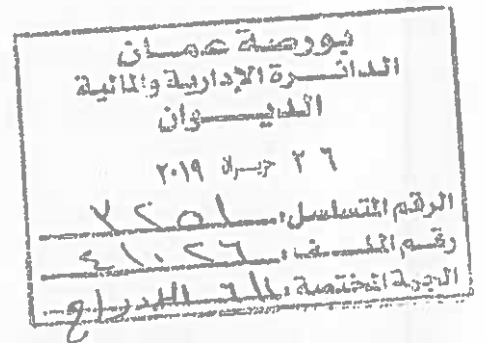 بورصة عمان
الدائرة الإدارية والمالية
الديوان
٢٦ حزيران ٢٠١٩
الرقم المتسلسل:
رقم الملف: ٤١٠٢٦
الجهة المختصة: